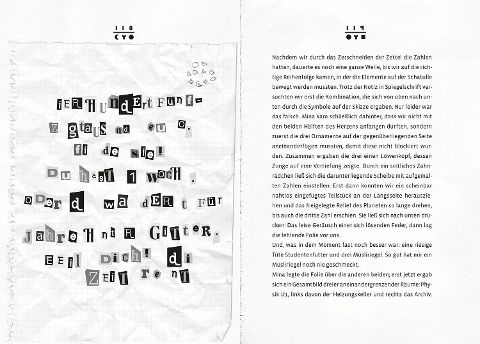 118
CYO
IERHUNDERTFÜNF-
ZIGTAUSND EURO.
FÜR DIESE!
DU HAST 1 WOCHE,
ODER DU WANDERST FÜR
JAHRE HINTER GITTER.
BEEIL DICH! DIE
ZEIT RENNT
119
OYB
Nachdem wir durch das Zerschneiden der Zettel die Zahlen
hatten, dauerte es noch eine ganze Weile, bis wir auf die rich-
tige Reihenfolge kamen, in der die Elemente auf der Schatulle
bewegt werden mussten. Trotz der Notiz in Spiegelschrift ver-
suchten wir erst die Kombination, die sich von oben nach un-
ten durch die Symbole auf der Skizze ergaben. Nur leider war
das falsch. Mina kam schließlich dahinter, dass wir nicht mit
den beiden Hälften des Herzens anfangen durften, sondern
zuerst die drei Ornamente auf der gegenüberliegenden Seite
aneinanderfügen mussten, damit diese nicht blockiert wur-
den. Zusammen ergaben die drei einen Löwenkopf, dessen
Zunge auf eine Vertiefung zeigte. Durch ein seitliches Zahn-
rädchen ließ sich die darunterliegende Scheibe mit aufgemal-
ten Zahlen einstellen. Erst dann konnten wir ein scheinbar
nahtlos eingefügtes Teilstück an der Längsseite herauszie-
hen und das freigelegte Relief des Planeten so lange drehen,
bis auch die dritte Zahl erschien. Sie ließ sich nach unten drü-
cken: Das leise Geräusch einer sich lösenden Feder, dann lag
die fehlende Folie vor uns.
Und, was in dem Moment fast noch besser war: eine riesige
Tüte Studentenfutter und drei Müsliriegel. So gut hat mir ein
Müsliriegel noch nie geschmeckt.
Mina legte die Folie über die anderen beiden; erst jetzt ergab
sich ein Gesamtbild dreier aneinandergrenzender Räume: Phy-
sik U1, links davon der Heizungskeller und rechts das Archiv.